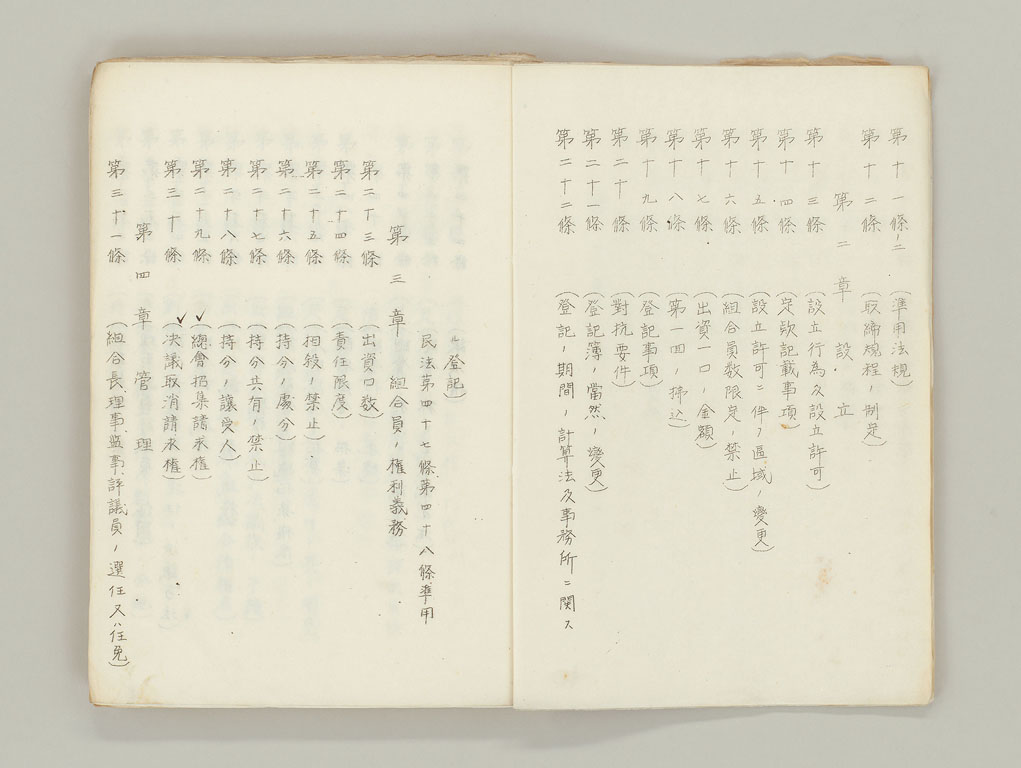 第十一條ノ二 (準用法規)
第十二條 (取締規程ノ制定)
第二章 設立
第十三條 (設立行為及設立許可)
第十四條 (定款記載事項)
第十五條 (設立許可ニ件フ區域ノ變更)
第十六條 (組合員数限定ノ禁止)
第十七條 (出資一口ノ金額)
第十八條 (第一回ノ拂込)
第十九條 (登記事項)
第二十條 (對抗要件)
第二十一條 (登記簿ノ當然ノ變更)
第二十二條 (登記ノ期間ノ計算法及事務所ニ関ス
ル登記)
民法第四十七條第四十八條準用
第三章 組合員ノ權利義務
第二十三條 (出資口数)
第二十四條 (責任限度)
第二十五條 (相殺ノ禁止)
第二十六條 (持分ノ處分)
第二十七條 (持分共有ノ禁止)
第二十八條 (持分ノ讓受人)
第二十九條 (總會招集請求權)
第三十條 (決議取消請求權)
第四章 管理
第三十一條 (組合長、理事、監事、評議員ノ選任又ハ任免)